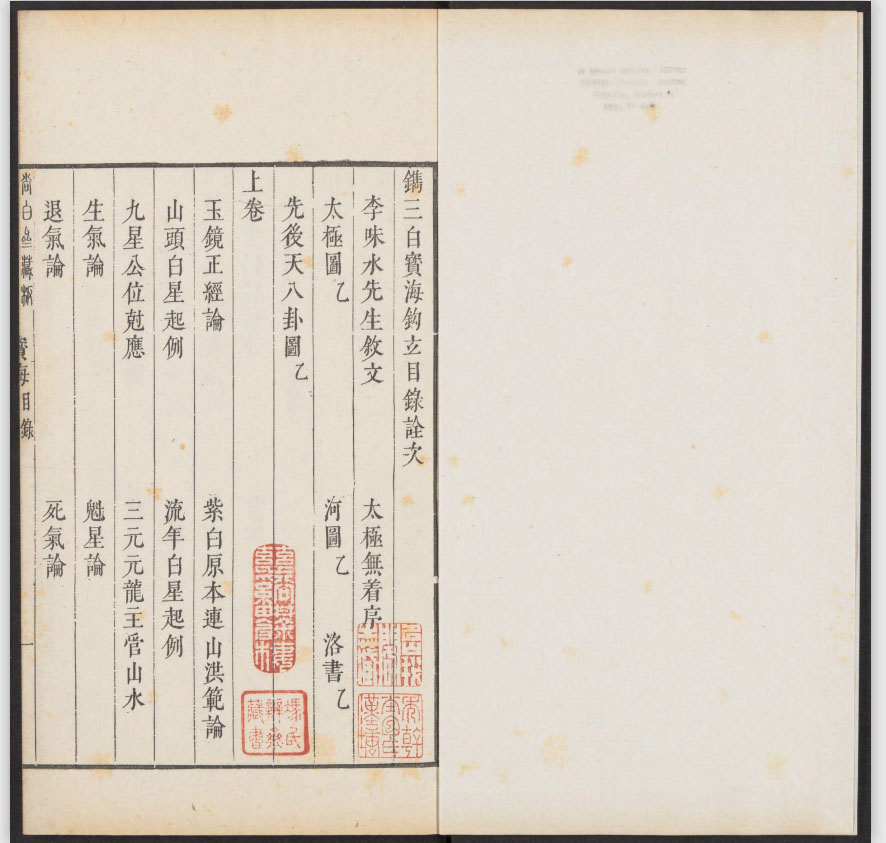 鐫三白寳海鈎玄目錄詮次
李味水先生敘文 太極無着序
太極圖乙 河圖乙 洛書乙
先後天八卦圖乙
上卷
玉鏡正經論 紫白原本連山洪範論
山頭白星起例 流年白星起例
九星公位尅應 三元元龍主管山水
生氣論 魁星論
退氣論 死氣論
寳海目錄 一
馮氏辨齋藏書